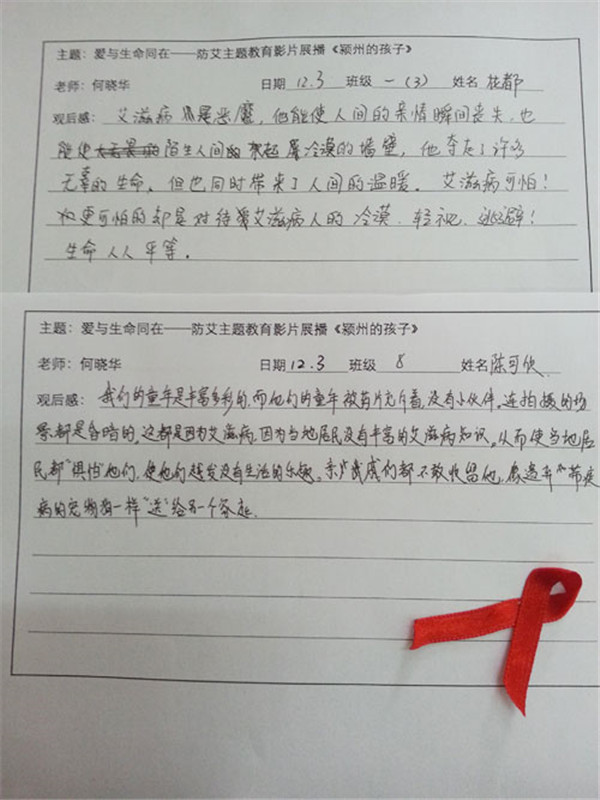 主题：爱与生命同在——防艾主题教育影片展播《颍州的孩子》
老师：何晓华 日期 12.3 班级 一(3) 姓名
观后感：艾滋病是恶魔，他能使人间的亲情瞬间丧失，也
能使陌生人间冷漠的墙壁，他夺走了许多
无辜的生命，但也同时带来了人间的温暖。艾滋病可怕！
更可怕的却是对待艾滋病人的冷漠、轻视、逃避！
生命人人平等。
主题：爱与生命同在——防艾主题教育影片展播《颍州的孩子》
老师：何晓华 日期 12.3 班级 8 姓名 陈可欣
观后感：我们的童年是丰富多彩的，而他们的童年被着，没有小伙伴。连拍摄的场
景都是昏暗的。这都是因为艾滋病，因为当地居民没有丰富的艾滋病知识。从而使当地居
民都“惧怕”他们，使他们越发没有生活的乐趣。亲戚们都不敢收留他，
病的宠物狗一样“送”给另一个家庭.